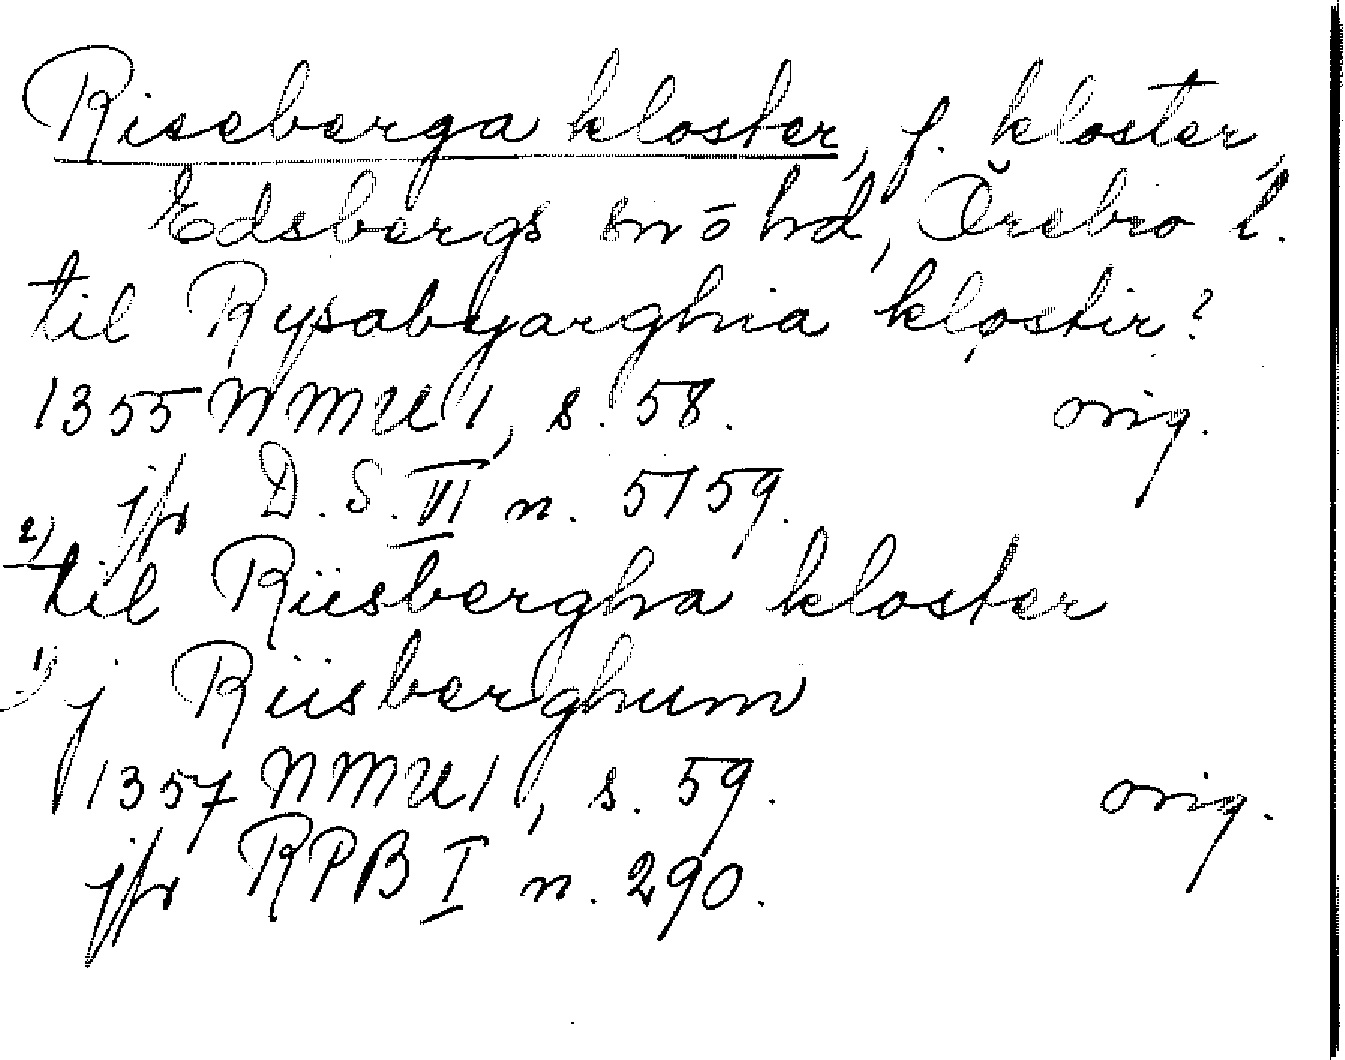 Riseberga kloster, f. kloster,
Edsbergs sn o hd, Örebro l.
til Rysabyarghia klostir?
1355 NMU 1, s. 58. orig.
jfr D.S. VI n. 5159.
2) til Riisbergha kloster
1) j Riisberghum
1357 NMU 1, s. 59. orig.
jfr RPB I n. 290.